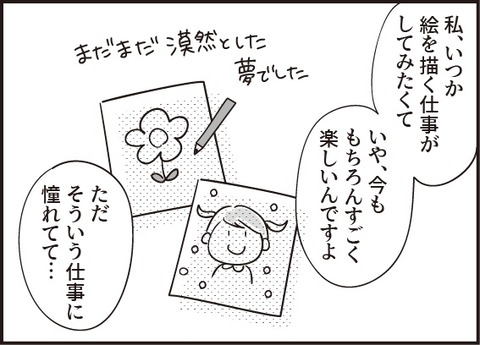 私、いつか
絵を描く仕事が
してみたくて
いや、今も
もちろんすごく
楽しいんですよ
まだまだ漠然とした
夢でした
ただ
そういう仕事に
憧れてて…